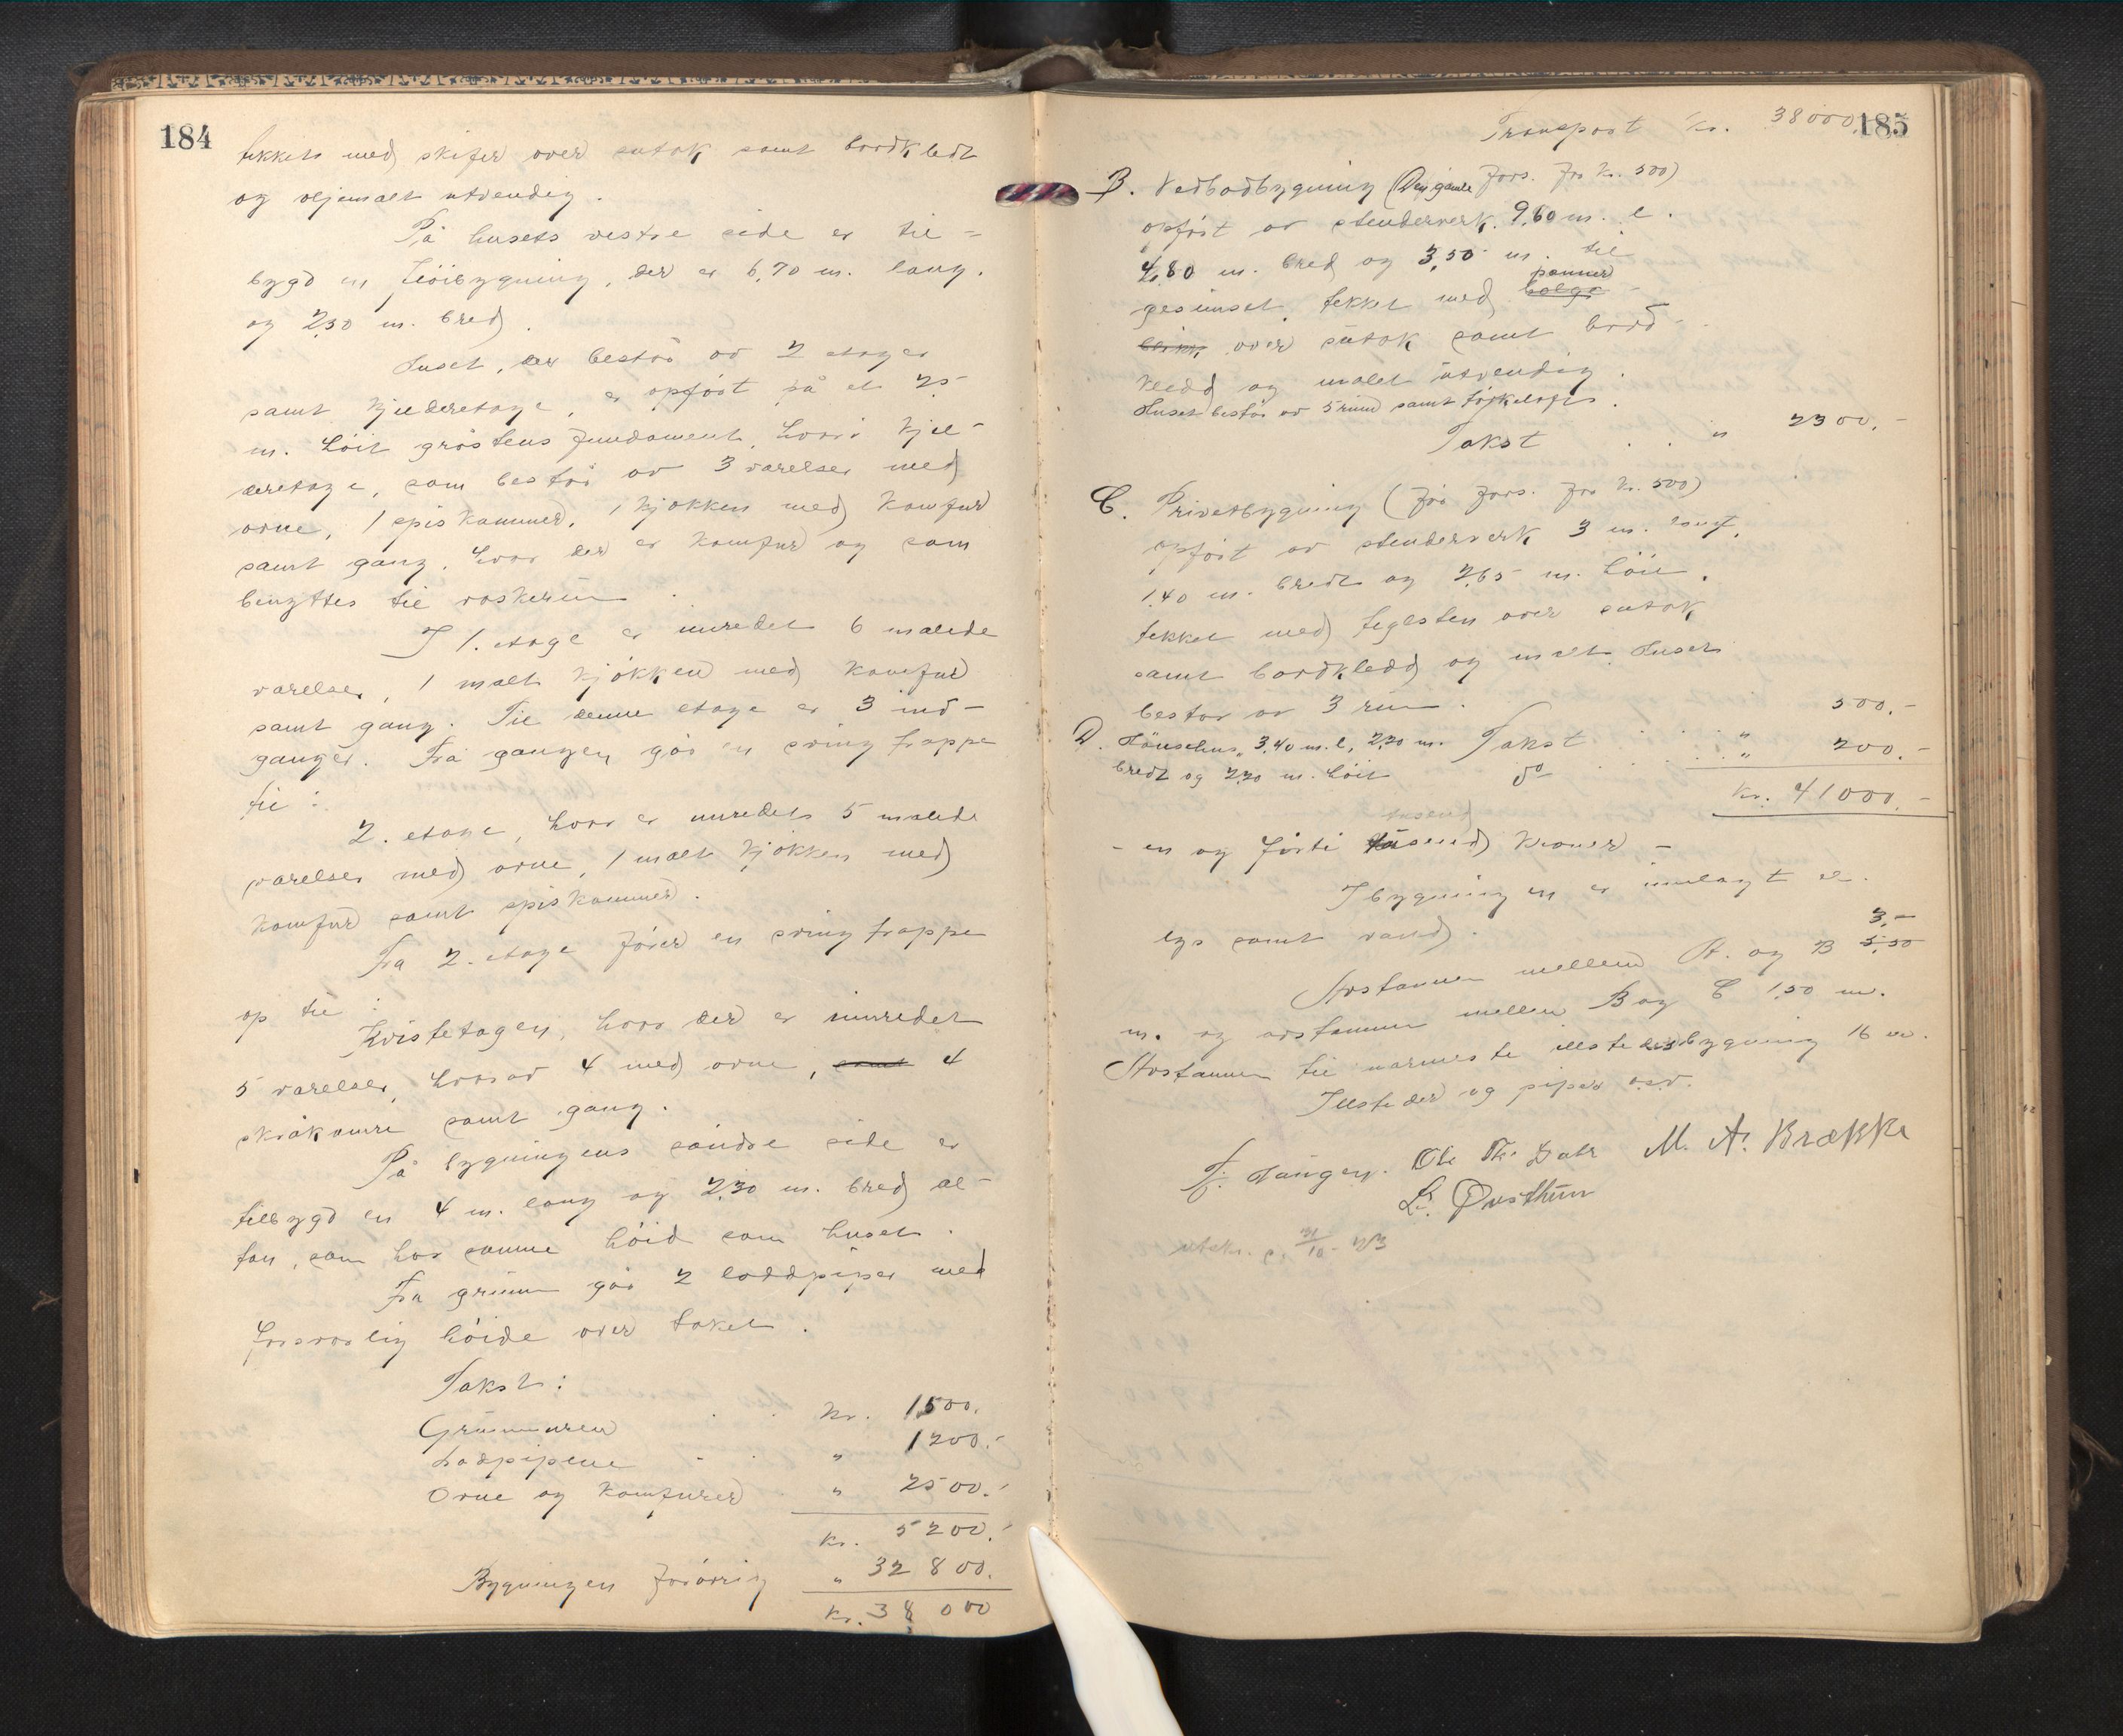 184
tekket med skifer over sutak samt bordkledt
og oljemalt utvendig.
På husets vestre side er til-
bygd en tiöibygning, der er 6,70 m. lang.
og 2,50 m. bred.
Huset, der består av 2 etager
samt kjelderetage, er opfört på et 2,5
m. höit gråstens fundament, hvori kjel-
deretage, som består av 3 værelser med
ovne, 1 spiskammer, 1 kjökken med komfur
samt gang, hvor der er komfur og som
benyttes til vaskerum.
I 1. etage er innredet 6 malede
værelser, 1 malt kjökken med komfur
samt gang. Til denne etage er 3 ind-
ganger. Fra gangen går en sving trappe
til:
2. etage, hvor er innredet 5 malede
værelser med ovne, 1 malt kjökken med
komfur samt spiskammer.
Fra 2. etage förer en sving trappe
op til:
Kvistetagen, hvor der er innredet
5 værelser, hvorav 4 med ovne, samt 4
skråkamre samt gang.
På bygningens söndre side er
tilbygd en 4 m. lang og 2,30 m. bred al-
tan, som har samme höid som huset.
Fra grunn går 2 loddpiper med
forsvarlig höide over taket.
Takst:
Grunnmuren . . kr. 1500.
Lodpipene - . " 1200.-
Ovne og komfurer " 2500.-
kr. 5200.-
Bygningen forövrig " 32800.
kr. 38000
185
Transport kr. 38000.
B. Vedbodbygning (Den gamle fors. for kr. 500)
opfört av stenderverk. 9,60 m. l.
4,80 m. bred og 3,50 m. til
gesimset, tekket med bølge- panner
blikk over sutak samt bord-
kledd og malet utvendig.
Huset består av 5 rum samt törkeloft.
Takst . . " 2300.-
C. Privetbygning (för fors. for kr. 500)
opfört av stenderverk 3 m. langt,
1,40 m. bredt og 2,65 m. höit.
tekket med teglsten over sutak
samt bordkledd og malt. Huset
består av 3 rum.
Takst . . . " 500.-
D. Hönsehus, 3,40 m. l, 2,20 m.
bredt og 2,20 m. höit do . . . " 200.-
kr. 41000.-
tusend
- en og förti tusend kroner -
I bygningen er innlagt el.
lys samt vand.
Avstannen mellem A. og B 5,50 3,-
m. og avstannen mellem B og C 1,50 m.
Avstannen til nærmeste illstedsbygning 16 m.
Illsteder og piper o.s.v.
Ole Th. Dahr M. A. Brække
utskr. s. 31/10-23